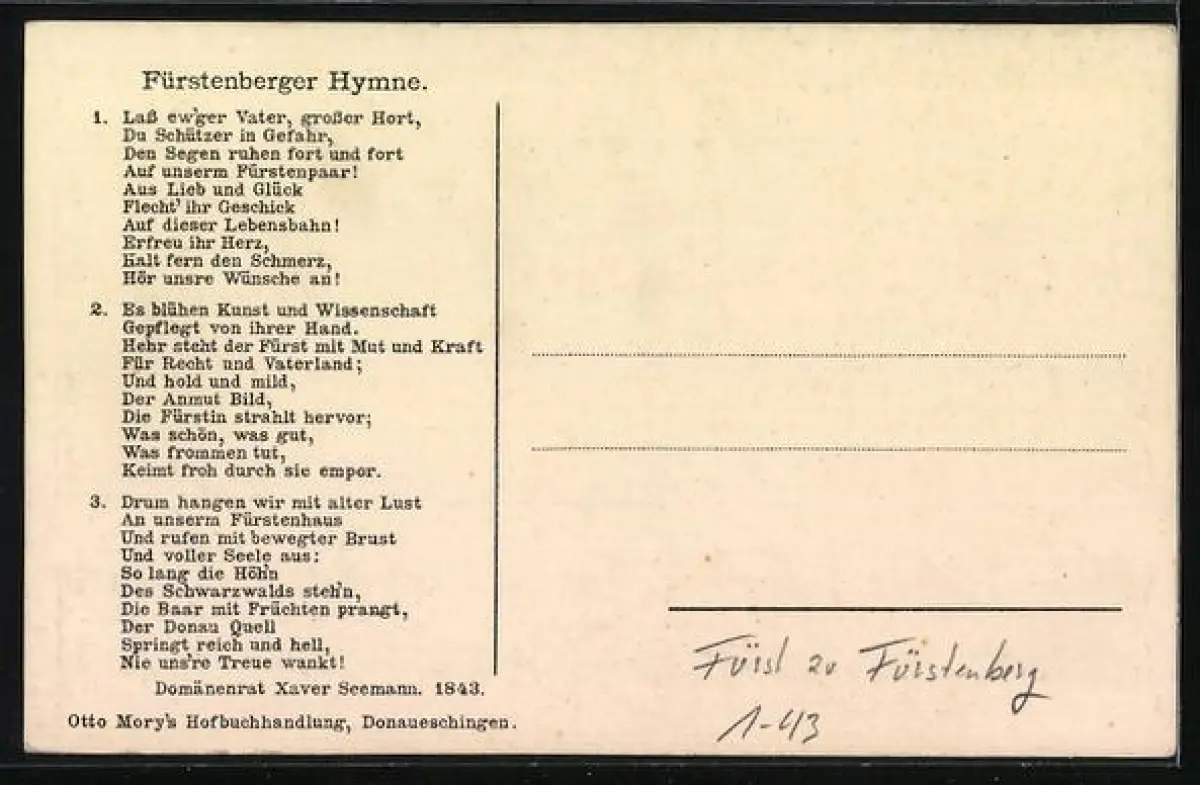 Fürstenberger Hymne.
1. Laß ew'ger Vater, großer Hort,
Du Schützer in Gefahr,
Den Segen ruhen fort und fort
Auf unserm Fürstenpaar!
Aus Lieb und Glück
Flecht' ihr Geschick
Auf dieser Lebensbahn!
Erfreu ihr Herz,
Halt fern den Schmerz,
Hör unsre Wünsche an!
2. Es blühen Kunst und Wissenschaft
Gepflegt von ihrer Hand.
Hehr steht der Fürst mit Mut und Kraft
Für Recht und Vaterland;
Und hold und mild,
Der Anmut Bild,
Die Fürstin strahlt hervor;
Was schön, was gut,
Was frommen tut,
Keimt froh durch sie empor.
3. Drum hangen wir mit alter Lust
An unserm Fürstenhaus
Und rufen mit bewegter Brust
Und voller Seele aus:
So lang die Höh'n
Des Schwarzwalds steh'n,
Die Baar mit Früchten prangt,
Der Donau Quell
Springt reich und hell,
Nie uns're Treue wankt!
Domänenrat Xaver Seemann. 1843.
Otto Mory's Hofbuchhandlung, Donaueschingen.
Fürst zu Fürstenberg
1-43